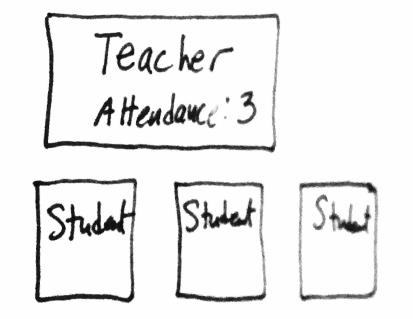 Teacher
Attendance: 3
Student
Student
Student